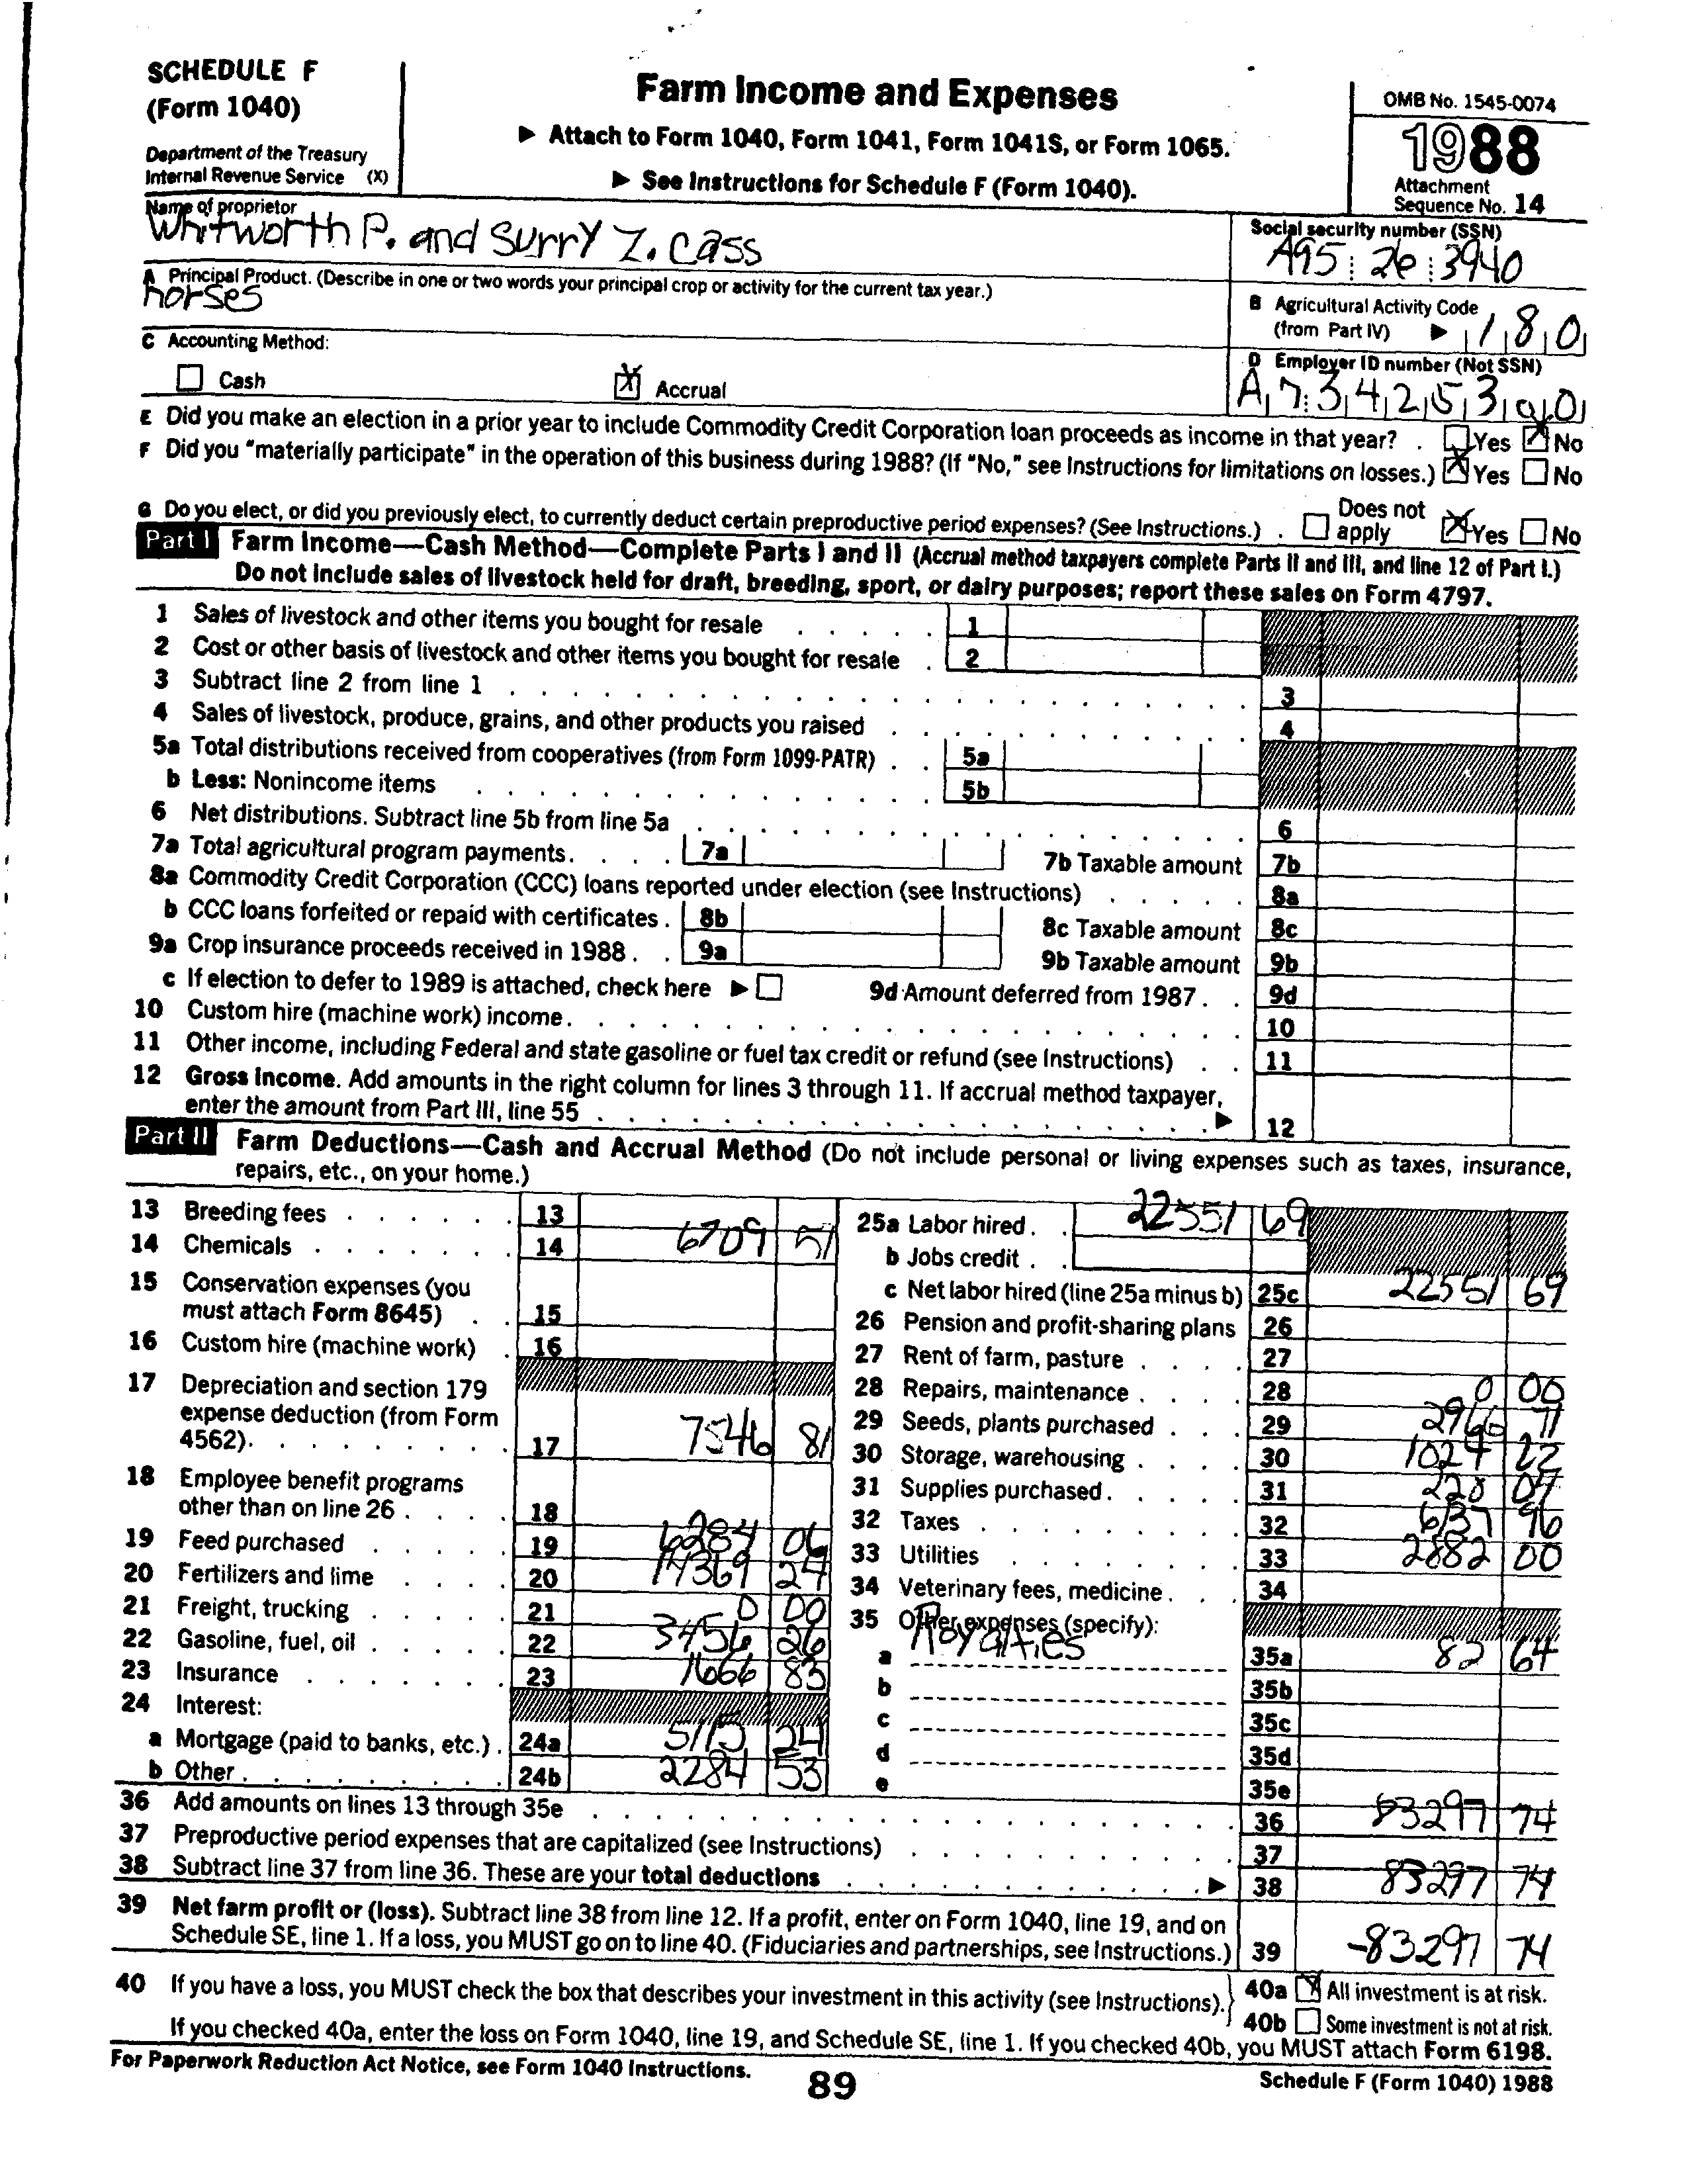 SCHEDULE F
(Form 1040)
Department of the Treasury
Internal Revenue Service (X)
Farm Income and Expenses
▶ Attach to Form 1040, Form 1041, Form 1041S, or Form 1065.
▶ See Instructions for Schedule F (Form 1040).
OMB No. 1545-0074
1988
Attachment
Sequence No. 14
Name of proprietor
Whitworth P. and Surry Z. Cass
Social security number (SSN)
A95 : 26 : 3940
A Principal Product. (Describe in one or two words your principal crop or activity for the current tax year.)
horses
B Agricultural Activity Code
(from Part IV) ▶ 1 8 0
C Accounting Method:
Cash
Accrual
D Employer ID number (Not SSN)
A 7 3 4 2 5 3 0 0
E Did you make an election in a prior year to include Commodity Credit Corporation loan proceeds as income in that year? . Yes No
F Did you "materially participate" in the operation of this business during 1988? (If "No," see Instructions for limitations on losses.) Yes No
G Do you elect, or did you previously elect, to currently deduct certain preproductive period expenses? (See Instructions.) . Does not apply Yes No
Part I Farm Income—Cash Method—Complete Parts I and II (Accrual method taxpayers complete Parts II and III, and line 12 of Part I.)
Do not include sales of livestock held for draft, breeding, sport, or dairy purposes; report these sales on Form 4797.
1 Sales of livestock and other items you bought for resale 1
2 Cost or other basis of livestock and other items you bought for resale 2
3 Subtract line 2 from line 1 3
4 Sales of livestock, produce, grains, and other products you raised 4
5a Total distributions received from cooperatives (from Form 1099-PATR) 5a
b Less: Nonincome items 5b
6 Net distributions. Subtract line 5b from line 5a 6
7a Total agricultural program payments. 7a 7b Taxable amount 7b
8a Commodity Credit Corporation (CCC) loans reported under election (see Instructions) 8a
b CCC loans forfeited or repaid with certificates . 8b 8c Taxable amount 8c
9a Crop insurance proceeds received in 1988 . 9a 9b Taxable amount 9b
c If election to defer to 1989 is attached, check here ▶ 9d Amount deferred from 1987 . 9d
10 Custom hire (machine work) income. 10
11 Other income, including Federal and state gasoline or fuel tax credit or refund (see Instructions) 11
12 Gross Income. Add amounts in the right column for lines 3 through 11. If accrual method taxpayer,
enter the amount from Part III, line 55 ▶ 12
Part II Farm Deductions—Cash and Accrual Method (Do not include personal or living expenses such as taxes, insurance,
repairs, etc., on your home.)
13 Breeding fees 13
14 Chemicals 14 6709 51
15 Conservation expenses (you
must attach Form 8645) 15
16 Custom hire (machine work) 16
17 Depreciation and section 179
expense deduction (from Form
4562). 17 7546 81
18 Employee benefit programs
other than on line 26 18
19 Feed purchased 19 6284 06
20 Fertilizers and lime 20 14369 24
21 Freight, trucking 21 0 00
22 Gasoline, fuel, oil 22 3456 26
23 Insurance 23 1666 83
24 Interest:
a Mortgage (paid to banks, etc.) 24a 5115 24
b Other 24b 2284 53
25a Labor hired 22551 69
b Jobs credit
c Net labor hired (line 25a minus b) 25c 22551 69
26 Pension and profit-sharing plans 26
27 Rent of farm, pasture 27
28 Repairs, maintenance 28 0 00
29 Seeds, plants purchased 29 2966 71
30 Storage, warehousing 30 1024 22
31 Supplies purchased 31 228 07
32 Taxes 32 6137 96
33 Utilities 33 2882 00
34 Veterinary fees, medicine 34
35 Other expenses (specify):
a Royalties 35a 82 64
b 35b
c 35c
d 35d
e 35e
36 Add amounts on lines 13 through 35e 36 83297 74
37 Preproductive period expenses that are capitalized (see Instructions) 37
38 Subtract line 37 from line 36. These are your total deductions ▶ 38 83297 74
39 Net farm profit or (loss). Subtract line 38 from line 12. If a profit, enter on Form 1040, line 19, and on
Schedule SE, line 1. If a loss, you MUST go on to line 40. (Fiduciaries and partnerships, see Instructions.) 39 -83297 74
40 If you have a loss, you MUST check the box that describes your investment in this activity (see Instructions). 40a All investment is at risk.
40b Some investment is not at risk.
If you checked 40a, enter the loss on Form 1040, line 19, and Schedule SE, line 1. If you checked 40b, you MUST attach Form 6198.
For Paperwork Reduction Act Notice, see Form 1040 Instructions.
89
Schedule F (Form 1040) 1988